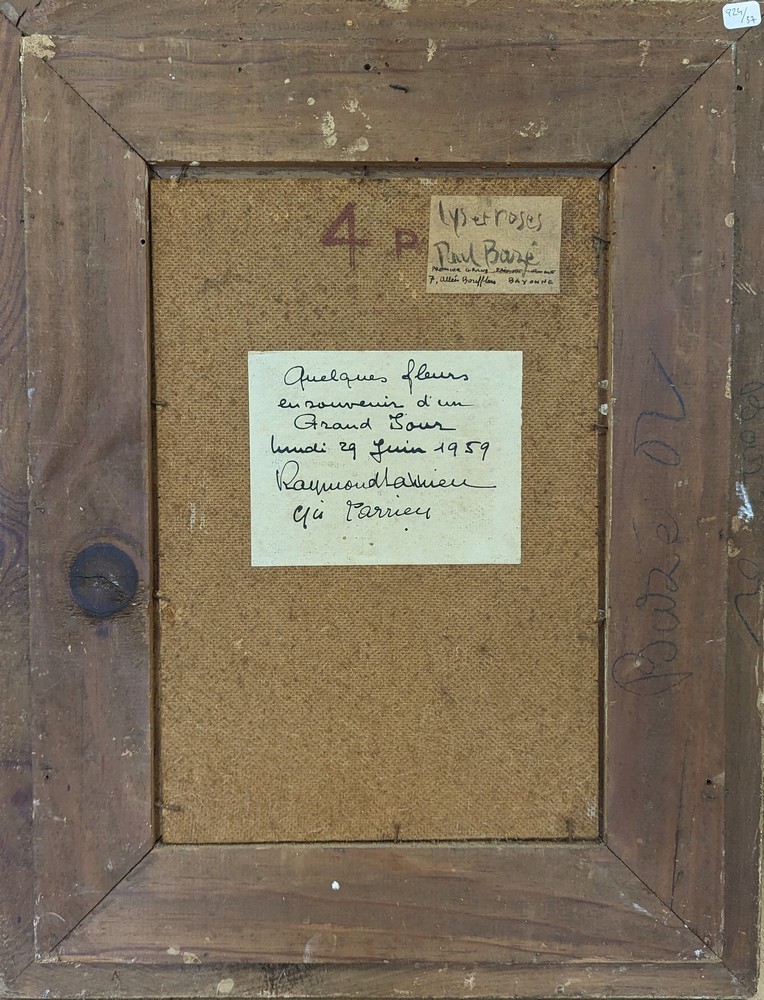 924/37
4 P
Lys et roses
Paul Bazé
PREMIER GRAND
7, allées Boufflers BAYONNE
Quelques fleurs
en souvenir d'un
Grand Jour
lundi 29 Juin 1959
Raymond Larrieu
Larrieu
Bazé